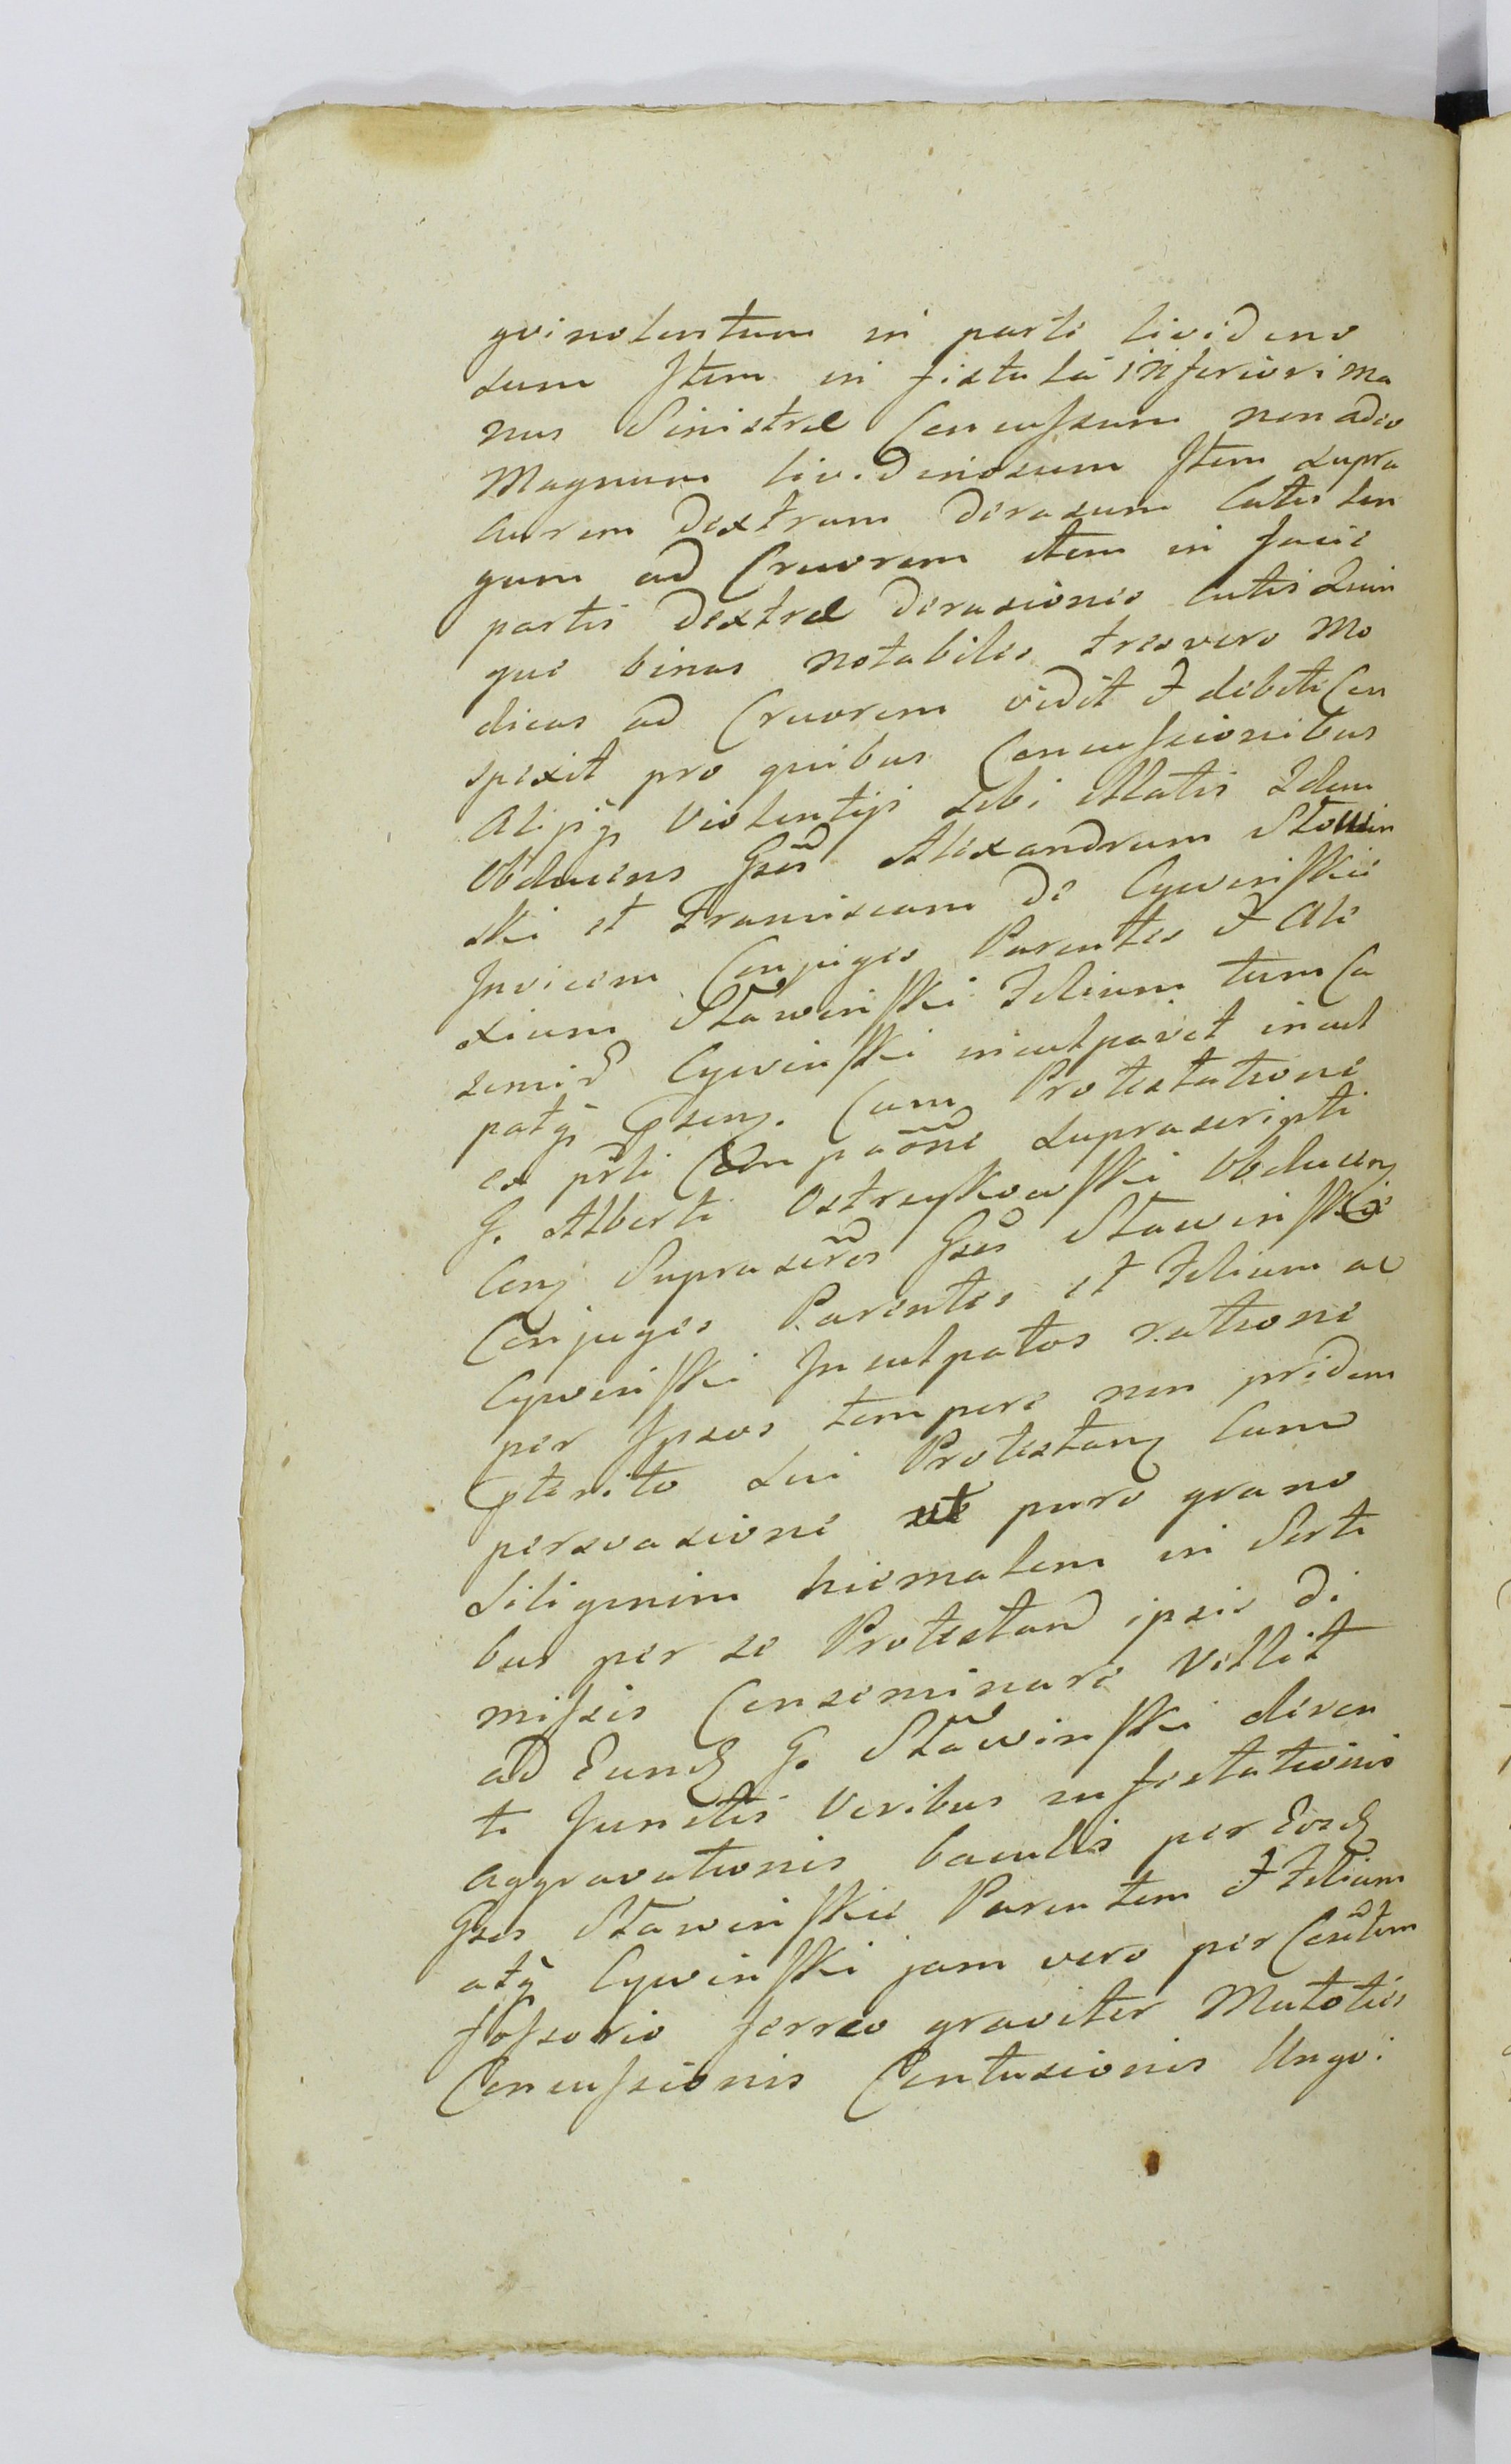 gvinolentum in parte lividino
sum Item in fistula inferiori ma
nus Sinistræ Concussum non adeo
Magnum lividinosum Item supra
Aurem dextram derasum Cutis lon
gum ad Cruorem item in facie
partis dextræ derasiones Cutis Quin
que binas notabiles tres vero Mo
dicas ad Cruorem vidit et debite Con
spexit pro quibus Concussionibus
aliisq violentiis sibi illatis Idem
Obducens Gsos Alexandrum Stawin
ski et Franciscam de Cywinskie
Invicem Conjuges Parentes et Ale
xium Stawinski Filium tum Ca
simir Cywinski inculpavit incul
patq psens. Cum Protestatione
ex prti Compaone suprascripti
G. Alberti Ostrzykowski Obducen
Conj Suprascros Gsos Stawinskie
Conjuges Parentes et Filium ac
Cywinski Inculpatos ratione
per Ipsos tempore non pridem
pterito sui Protestan Cum
persvasione ut puro grano
siliginem hiemalem in Sorti
bus per se Protestan ipsis di
missis Conseminare vellet
ad Eund G. Stawinski diven
ti Junctis Viribus infestationis
aggravationis baculis per Eosd
Gsos Stawinskie Parentem et Filium
atq Cywinski jam vero per
fossorio ferreo graviter Mutoties
Concussionis Contusionis Ungvi